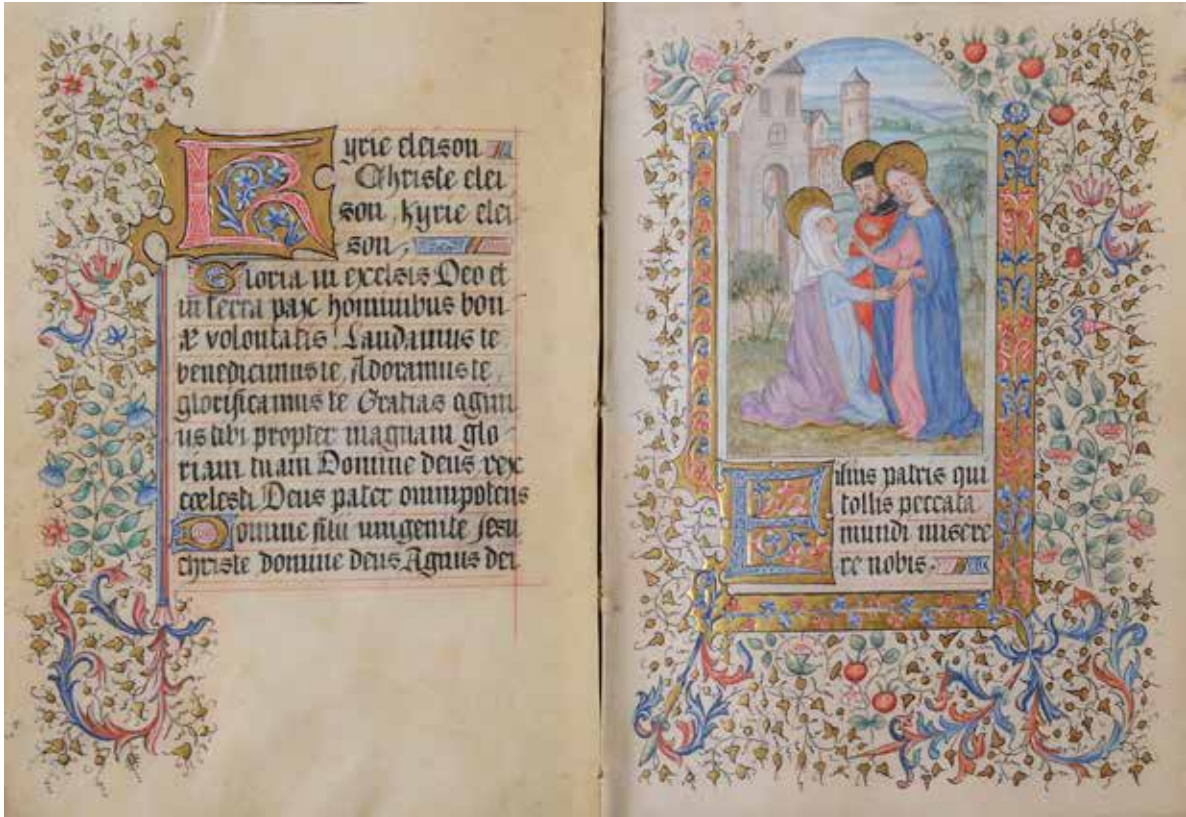 Kyrie eleison
Christe elei
son, Kyrie elei
son,
Gloria in excelsis Deo et
in terra pax hominibus bon
æ volontatis! Laudamus te
benedicimus te, Adoramus te,
glorificamus te Gratias agim
us tibi propter magnam glo
riam tuam Domine deus rex
cœlesti Deus pater omnipotens
Domine fili unigenite Jesu
christe domine deus Agnus dei
Filius patris qui
tollis peccata
mundi misere
re nobis.